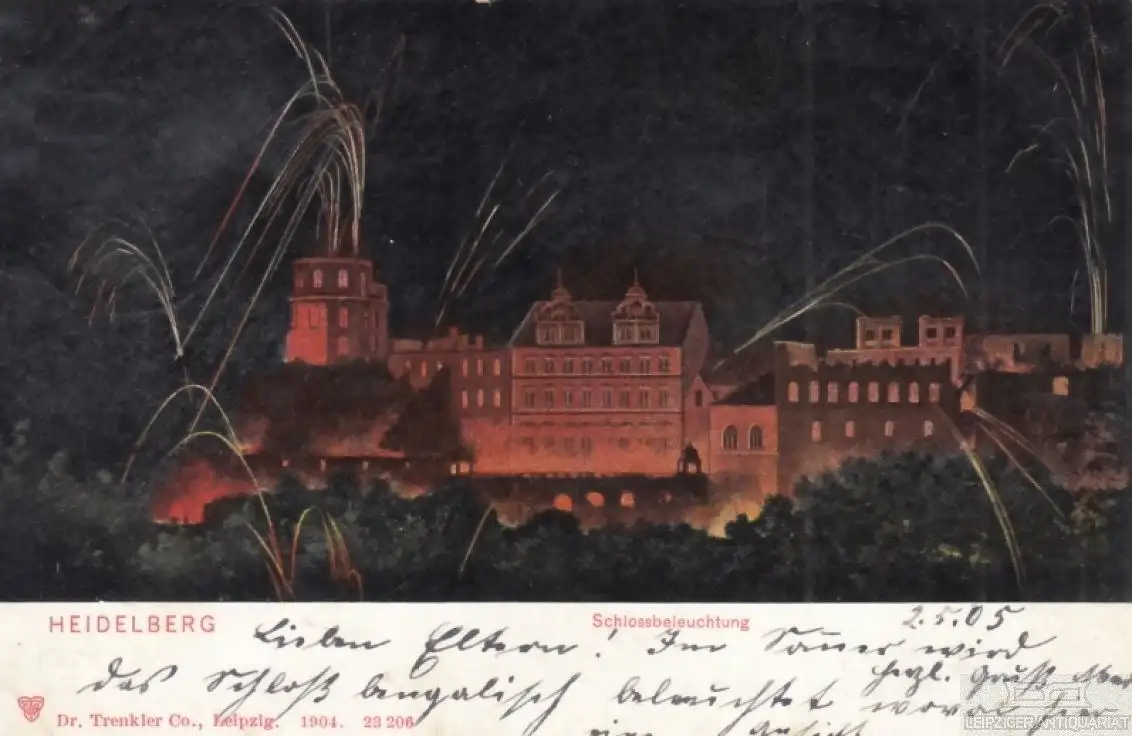 HEIDELBERG
Schlossbeleuchtung
2.5.05
Lieben Eltern! Im wird
das Schloß bengalisch beleuchtet wovon hier
herzl. Gruß
eine Ansicht
Dr. Trenkler Co., Leipzig. 1904. 23 206
LEIPZIGER ANTIQUARIAT